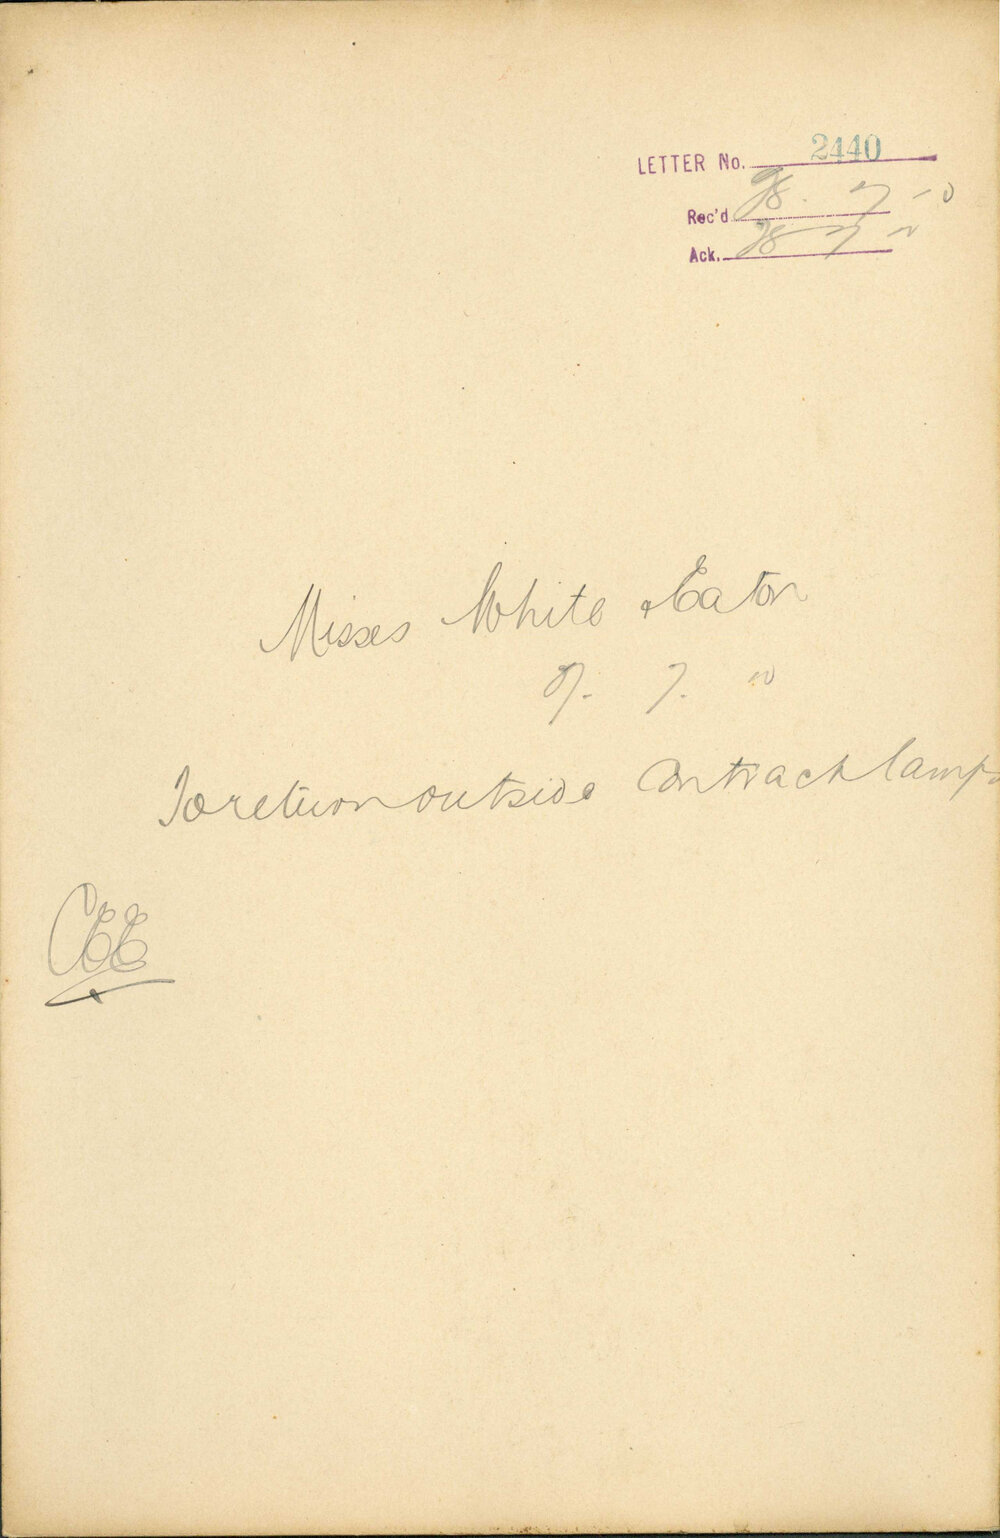 LETTER No. 2440
Rec'd 28. 7 10
Ack. 28 7 10
Misses White & Eaton
7. 10
To return outside contract lamps
CEE